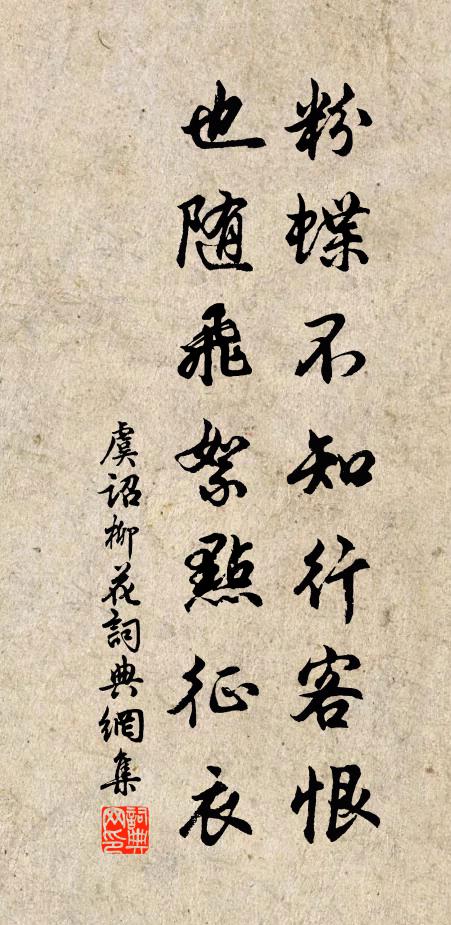 粉蝶不知行客恨
也随飛絮點征衣
虞詔柳花詞典網集
詞典網印